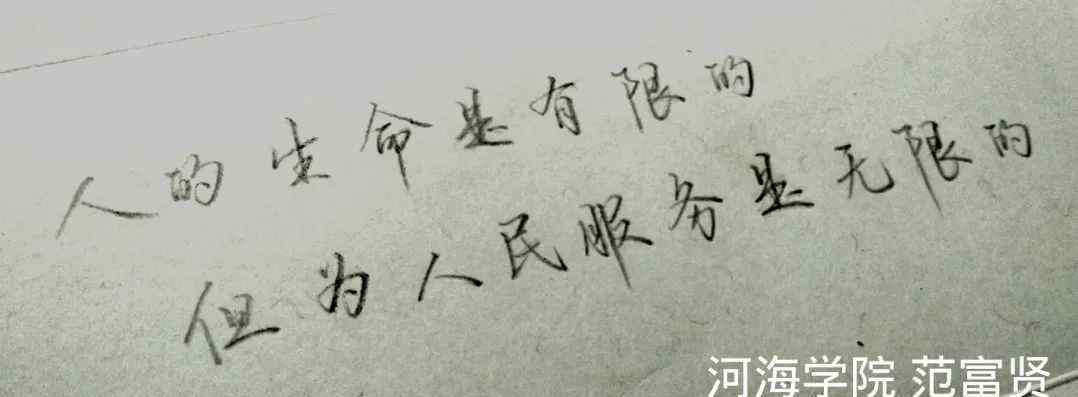 人的生命是有限的
但为人民服务是无限的
河海学院 范富贤